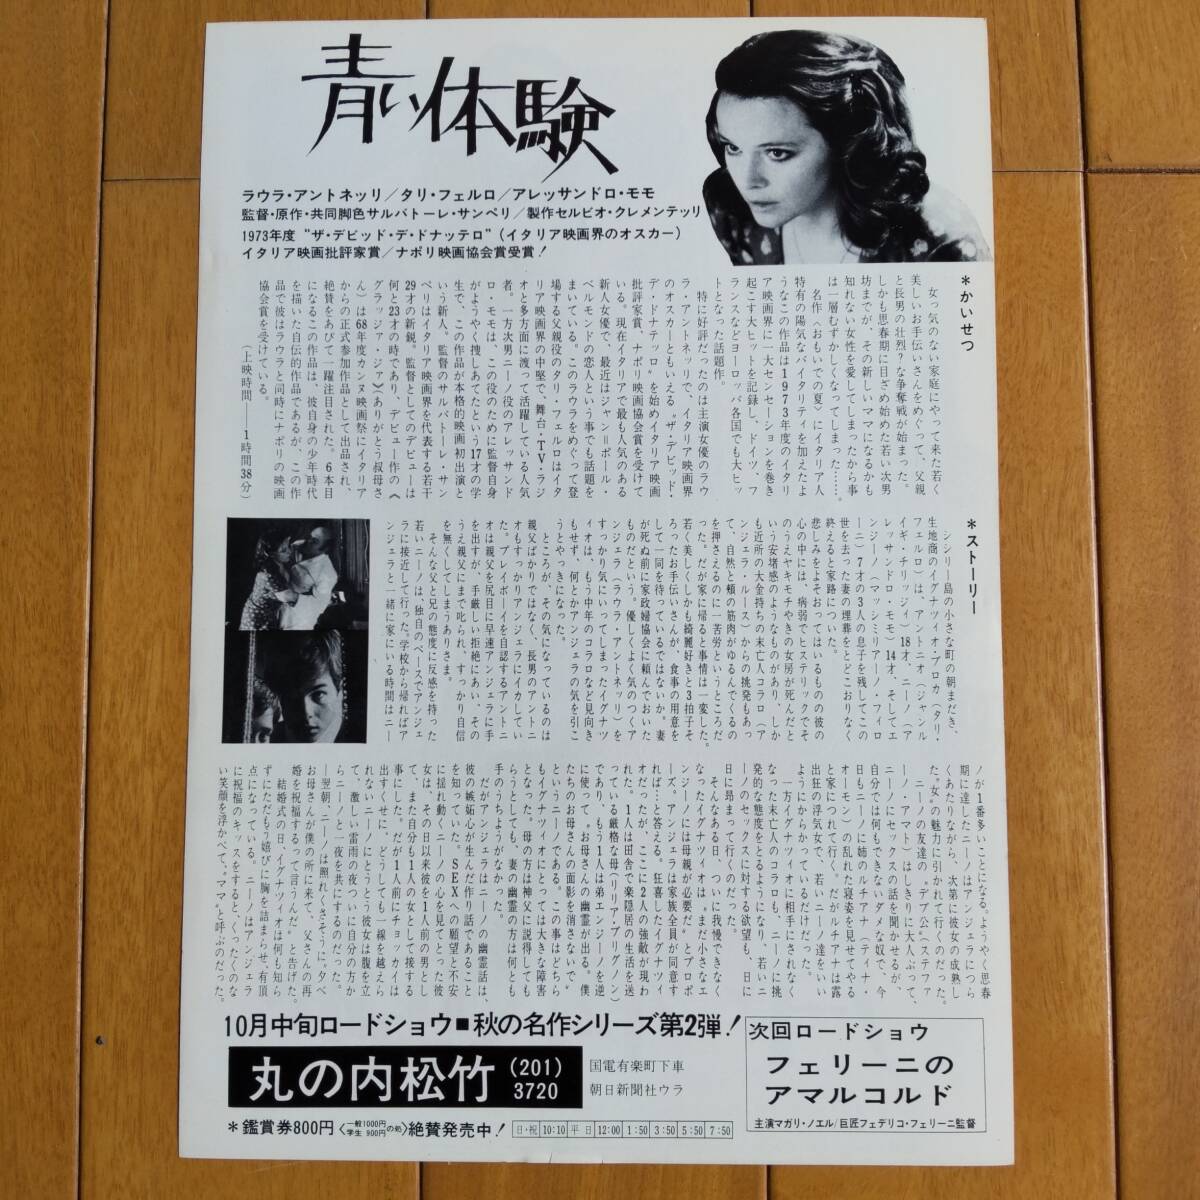 青い体験
ラウラ・アントネッリ/タリ・フェルロ/アレッサンドロ・モモ
監督・原作・共同脚色サルバトーレ・サンペリ/製作セルビオ・クレメンテッリ
1973年度“ザ・デビッド・デ・ドナッテロ”(イタリア映画界のオスカー)
イタリア映画批評家賞/ナポリ映画協会賞受賞!
*かいせつ
女っ気のない家庭にやって来た若く
美しいお手伝いさんをめぐって、父親
と長男の壮烈?な争奪戦が始まった。
しかも思春期に目ざめ始めた若い次男
坊までが、その新しいママになるかも
知れない女性を愛してしまったから事
は一層むずかしくなってしまった……。
名作〈おもいでの夏〉にイタリア人
特有の陽気なバイタリティを加えたよ
うなこの作品は1973年度のイタリ
ア映画界に一大センセーションを巻き
起こす大ヒットを記録し、ドイツ、フ
ランスなどヨーロッパ各国でも大ヒッ
トとなった話題作。
特に好評だったのは主演女優のラウ
ラ・アントネッリで、イタリア映画界
のオスカーともいえる“ザ・デビッド・
デ・ドナテッロ”を始めイタリア映画
批評家賞、ナポリ映画協会賞を受けて
いる。現在イタリアで最も人気のある
新人女優で、最近はジャン=ポール・
ベルモンドの恋人という事でも話題を
まいている。このラウラをめぐって登
場する父親役のタリ・フェルロはイタ
リア映画界の中堅で、舞台・TV・ラジ
オと多方面に渡って活躍している人気
者。一方次男ニーノ役のアレッサンド
ロ・モモは、この役のために監督自身
がようやく捜しあてたという17才の学
生で、この作品が本格的映画初出演と
いう新人。監督のサルバトーレ・サン
ペリはイタリア映画界を代表する若干
29才の新鋭。監督としてのデビューは
何と23才の時であり、デビュー作の《
グラッツィア・ジァ》(ありがとう叔母さ
ん)は68年度カンヌ映画祭にイタリア
からの正式参加作品として出品され、
絶賛をあびて一躍注目された。6本目
になるこの作品は、彼自身の少年時代
を描いた自伝的作品であるが、この作
品で彼はラウラと同時にナポリの映画
協会賞を受けている。
(上映時間——1時間38分)
*ストーリー
シシリー島の小さな町の朝まだき、
生地商のイグナツィオ・ブロカ(タリ・
フェルロ)は、アントニオ(ジャンル
イギ・チリッジィ)18才、ニーノ(ア
レッサンドロ・モモ)14才、そしてエ
ンジーノ(マッシミリアーノ・フィロ
ーニ)7才の3人の息子を残してこの
世を去った妻の埋葬をとどこおりなく
終えると家路についた。
悲しみをよそおってはいるものの彼の
心の中には、病弱でヒステリックでそ
のうえヤキモチやきの女房が死んだと
いう安堵感のようなものがあり、しか
も近所の大金持ちの未亡人コラロ(ア
ンジェラ・ルース)からの挑発もあっ
て、自然と頬の筋肉がゆるんでくるの
を押さえるのに一苦労というところだ
った。だが家に帰ると事情は一変した。
若く美しくしかも綺麗好きと3拍子そ
ろったお手伝いさんが、食事の用意を
して一同を待っているではないか。妻
が死ぬ前に家政婦協会に頼んでおいた
ものだという。優しくよく気のつくア
ンジェラ(ラウラ・アントネッリ)を
すっかり気にいってしまったイグナツ
ィオは、もう中年のコラロなど見向き
もせず、何とかアンジェラの気を引こ
うとやっきになった。
ところが、その気になっているのは
親父ばかりではなく、長男のアントニ
オもすっかりアンジェラにイカしてい
た。プレイボーイを自認するアントニ
オは親父を尻目に早速アンジェラに手
を出すが、手厳しい拒絶にあい、その
うえ親父にまで叱られ、すっかり自信
を無くしてしまうありさま。
そんな父と兄の態度に反感を持った
若いニーノは、独自のペースでアンジェ
ラに接近して行った。学校から帰ればア
ンジェラと一緒に家にいる時間はニー
ノが1番多いことになる。ようやく思春
期に達したニーノはアンジェラにつら
くあたりながら、次第に彼女の成熟し
た“女”の魅力に引かれて行くのだった。
ニーノの友達の“デブ公”(ステファ
ーノ・アマト)はしきりに大人ぶって、
ニーノにセックスの話を聞かせるが、
自分では何もできないダメな奴で、今
日もニーノに姉のルチアナ(ティナ・
オーモン)の乱れた寝姿を見せてやる
と家につれて行く。だがルチアナは露
出狂の浮気女で、若いニーノ達をいい
ようにからかっているだけだった。
一方イグナツィオに相手にされなく
なった未亡人のコラロも、ニーノに挑
発的な態度をとるようになり、若いニ
ーノのセックスに対する欲望も、日に
日に昂まって行くのだった。
そんなある日、ついに我慢できなく
なったイグナツィオは“まだ小さなエ
ンジーノには母親が必要だ”とプロポ
ーズ、アンジェラは家族全員が同意す
れば…と答える。狂喜したイグナツィ
オだったが、ここに2人の強敵が現わ
れた。1人は田舎で楽隠居の生活を送
っている厳格な母(リリア・ブリグノン)
であり、もう1人は弟エンジーノを逆
に使って“お母さんの幽霊が出る。僕
たちのお母さんの面影を消さないで”
というニーノである。この事はどちら
もイグナツィオにとっては大きな障害
となった。母の方は神父に説得しても
らうとしても、妻の幽霊の方は何とも
手のうちようがなかった。
だがアンジェラはニーノの幽霊話は、
彼の嫉妬心が生んだ作り話である事
を知っていた。SEXへの願望と不安
に揺れ動くニーノの心を見てとった彼
女は、その日以来彼を1人前の男とし
て、また自分も1人の女として接する
事にした。だが1人前にチョッカイは
出すくせに、どうしても一線を越えら
れないニーノにとうとう彼女は腹を立
て、激しい雷雨の夜ついに自分の方か
らニーノと一夜を共にするのだった。
—翌朝、ニーノは照れくさそうに“夕べ
お母さんが僕の所に来て、父さんの再
婚を祝福するって言うんだ”と告げた。
結婚式の日、イグナツィオは何も知ら
ずにただもう嬉びに胸を詰まらせ、有頂
点になっている。ニーノはアンジェラ
に祝福のキッスをすると、くったくのな
い笑顔を浮かべて、“ママ”と呼ぶのだった。
10月中旬ロードショウ■秋の名作シリーズ第2弾!
丸の内松竹 (201) 3720
国電有楽町下車
朝日新聞社ウラ
*鑑賞券800円〈一般1000円 学生 900円の処〉絶賛発売中! 日・祝 10:10 平日 12:00 1:50 3:50 5:50 7:50
次回ロードショウ
フェリーニの
アマルコルド
主演マガリ・ノエル/巨匠フェデリコ・フェリーニ監督